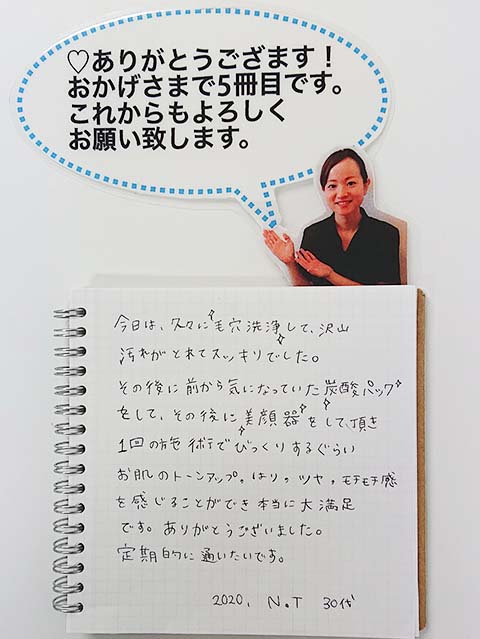 ♡ありがとうござます！
おかげさまで5冊目です。
これからもよろしく
お願い致します。
今日は、久々に毛穴洗浄して、沢山
汚れがとれてスッキリでした。
その後に前から気になっていた炭酸パック
をして、その後に美顔器をして頂き
1回の施術でびっくりするぐらい
お肌のトーンアップ。はり，ツヤ，モチモチ感
を感じることができ本当に大満足
です。ありがとうございました。
定期的に通いたいです。
2020. N.T 30代